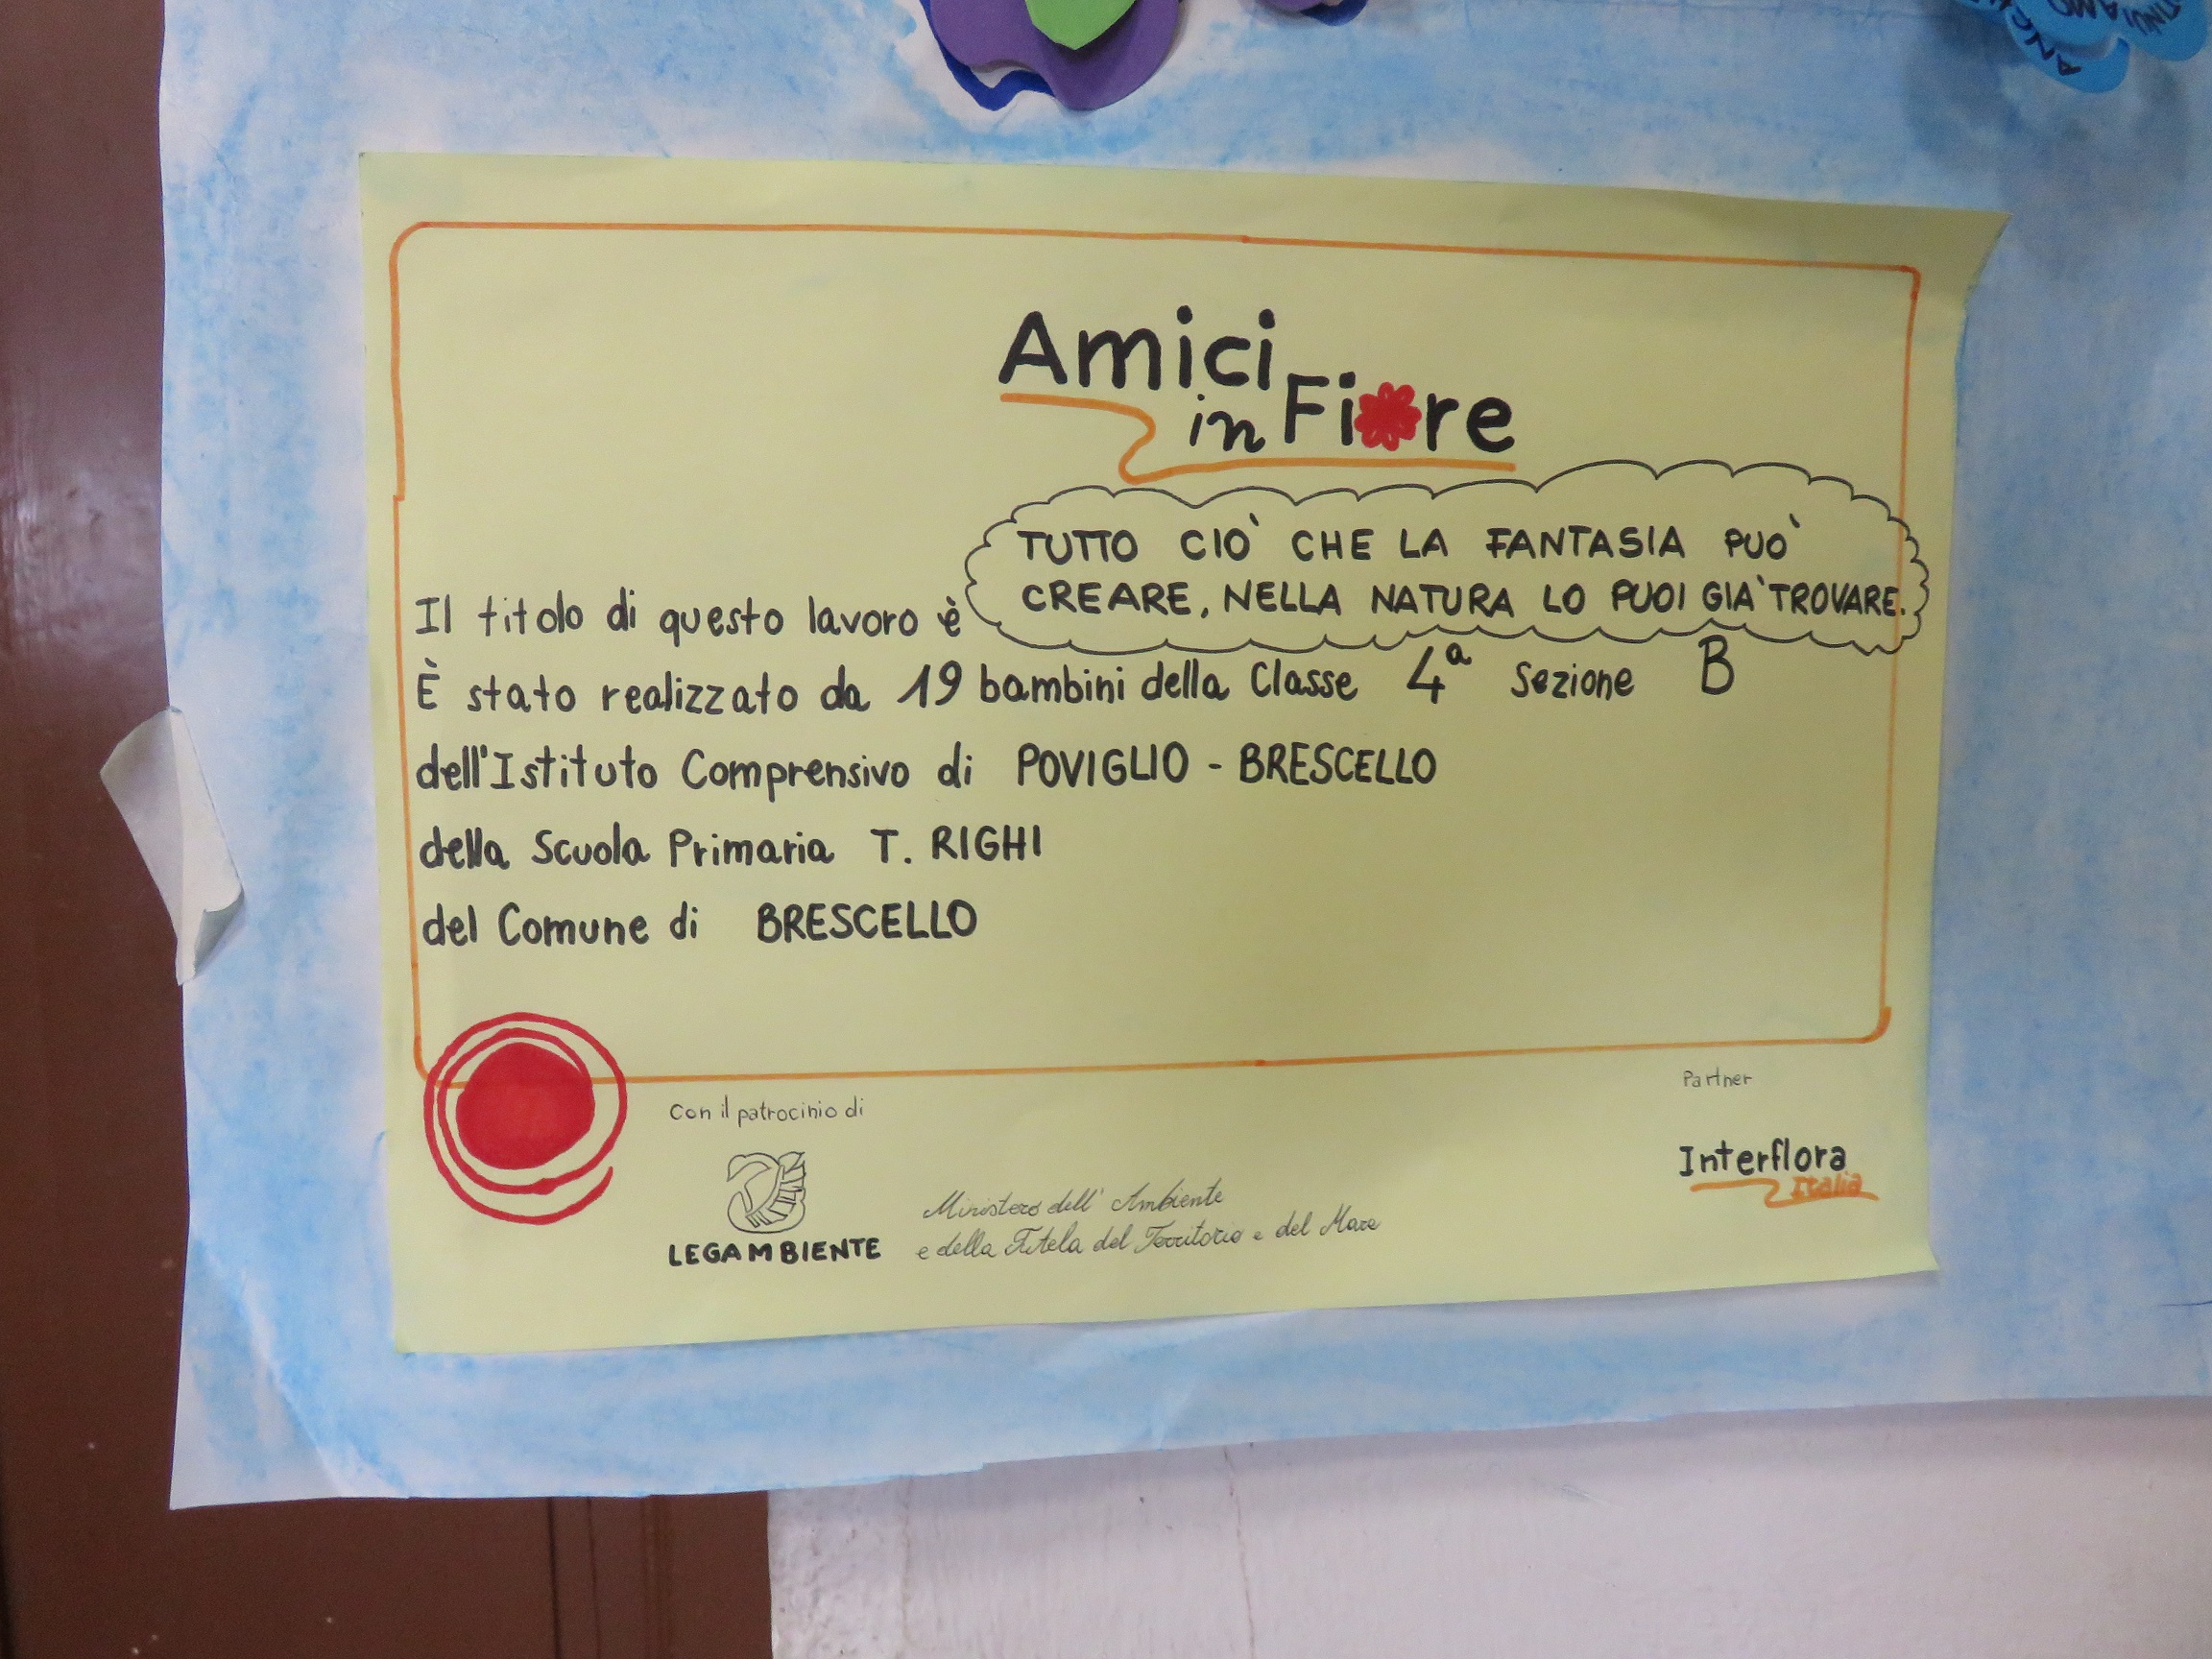 Amici
in Fiore
TUTTO CIÒ CHE LA FANTASIA PUÒ
CREARE, NELLA NATURA LO PUOI GIÀ TROVARE.
Il titolo di questo lavoro è
È stato realizzato da 19 bambini della Classe 4ª Sezione B
dell'Istituto Comprensivo di POVIGLIO - BRESCELLO
della Scuola Primaria T. RIGHI
del Comune di BRESCELLO
Con il patrocinio di
LEGAMBIENTE
Ministero dell'Ambiente
e della Tutela del Territorio e del Mare
Partner
Interflora
Italia